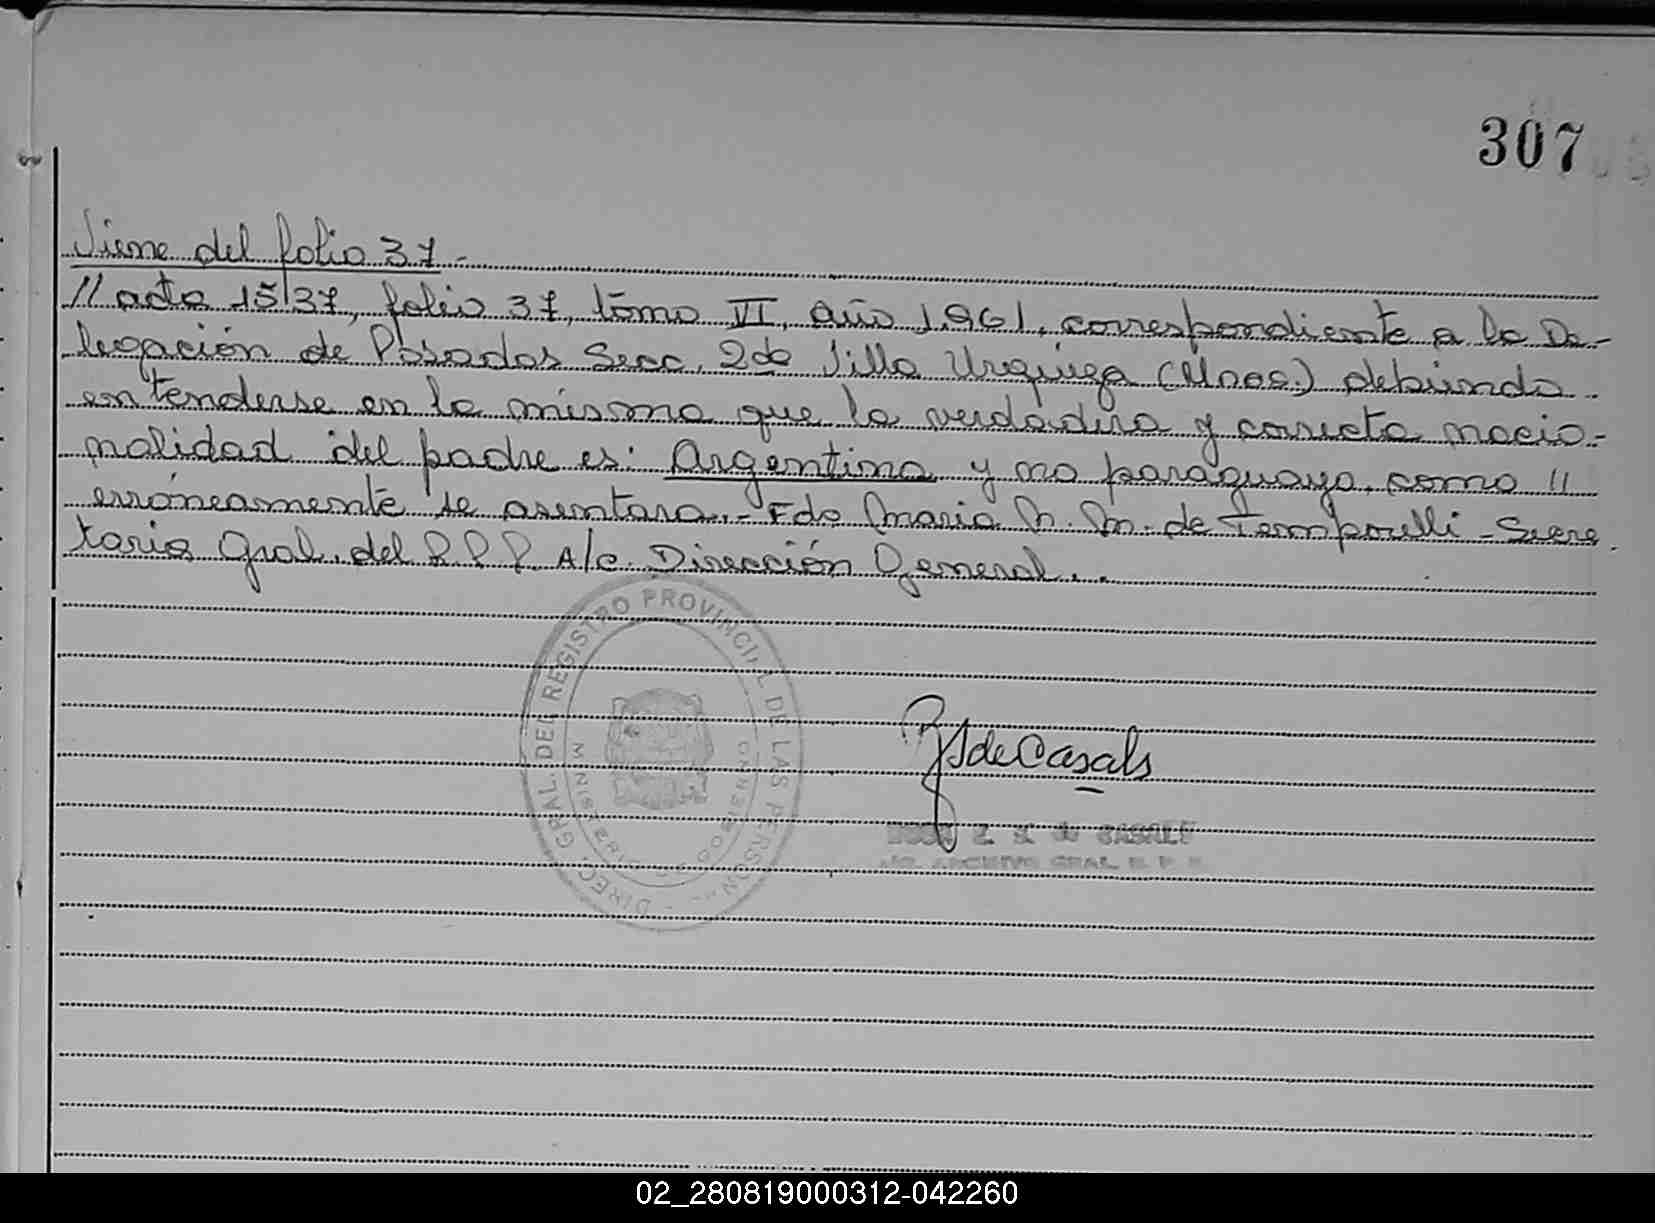 307
Viene del folio 37.-
// acta 1537, folio 37, tomo VI, año 1.961, correspondiente a la De-
legación de Posadas Secc. 2da Villa Urquiza (Mnes.) debiendo
entenderse en la misma que la verdadera y correcta nacio-
nalidad del padre es: Argentina y no paraguaya, como //
erróneamente se asentara.- Fdo Maria N. M. de Temporelli - Secre
taria Gral. del R.P.P. A/c. Dirección General..
DIREC. GRAL. DEL REGISTRO PROVINCIAL DE LAS PERSON
MINISTERIO DE GOBIERNO
de Casals
de CASALS
ARCHIVO GRAL. R. P. P.
02_280819000312-042260